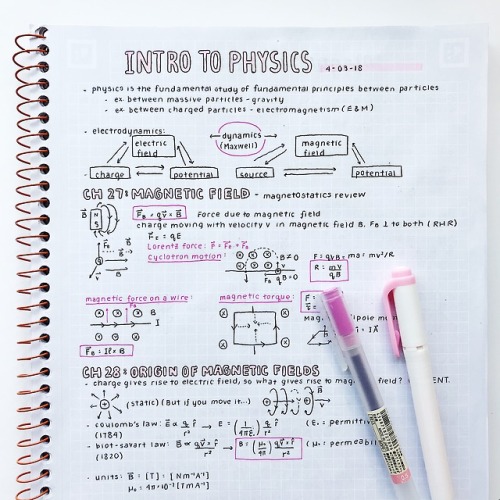 INTRO TO PHYSICS 4-03-18
- physics is the fundamental study of fundamental principles between particles
- ex. between massive particles - gravity
- ex. between charged particles - electromagnetism (E & M)
- electrodynamics:
electric field
dynamics (Maxwell)
magnetic field
charge
potential
source
potential
CH 27: MAGNETIC FIELD - magnetostatics review
B N S
F_B = qv × B Force due to magnetic field
charge moving with velocity v in magnetic field B. F_B ⊥ to both (RHR)
F_E = qE
Lorentz force: F = F_E + F_B
Cyclotron motion:
B≠0
B=0
F = qvB = ma = mv²/R
R = mv/qB
magnetic force on a wire:
B
I
F_B = Il × B
magnetic torque:
F =
τ =
CH 28: ORIGIN OF MAGNETIC FIELDS
- charge gives rise to electric field, so what gives rise to field?
(static) (But if you move it...)
- coulomb's law: E ∝ q/r² r̂ → E = (1/4πε₀) q/r² r̂
(1784)
- biot-savart law: B ∝ qv × r̂/r² → B = (μ₀/4π) qv × r̂/r²
(1820)
- units: B = [T] = [Nm⁻¹A⁻¹]
μ₀ = 4π×10⁻⁷ [TmA⁻¹]